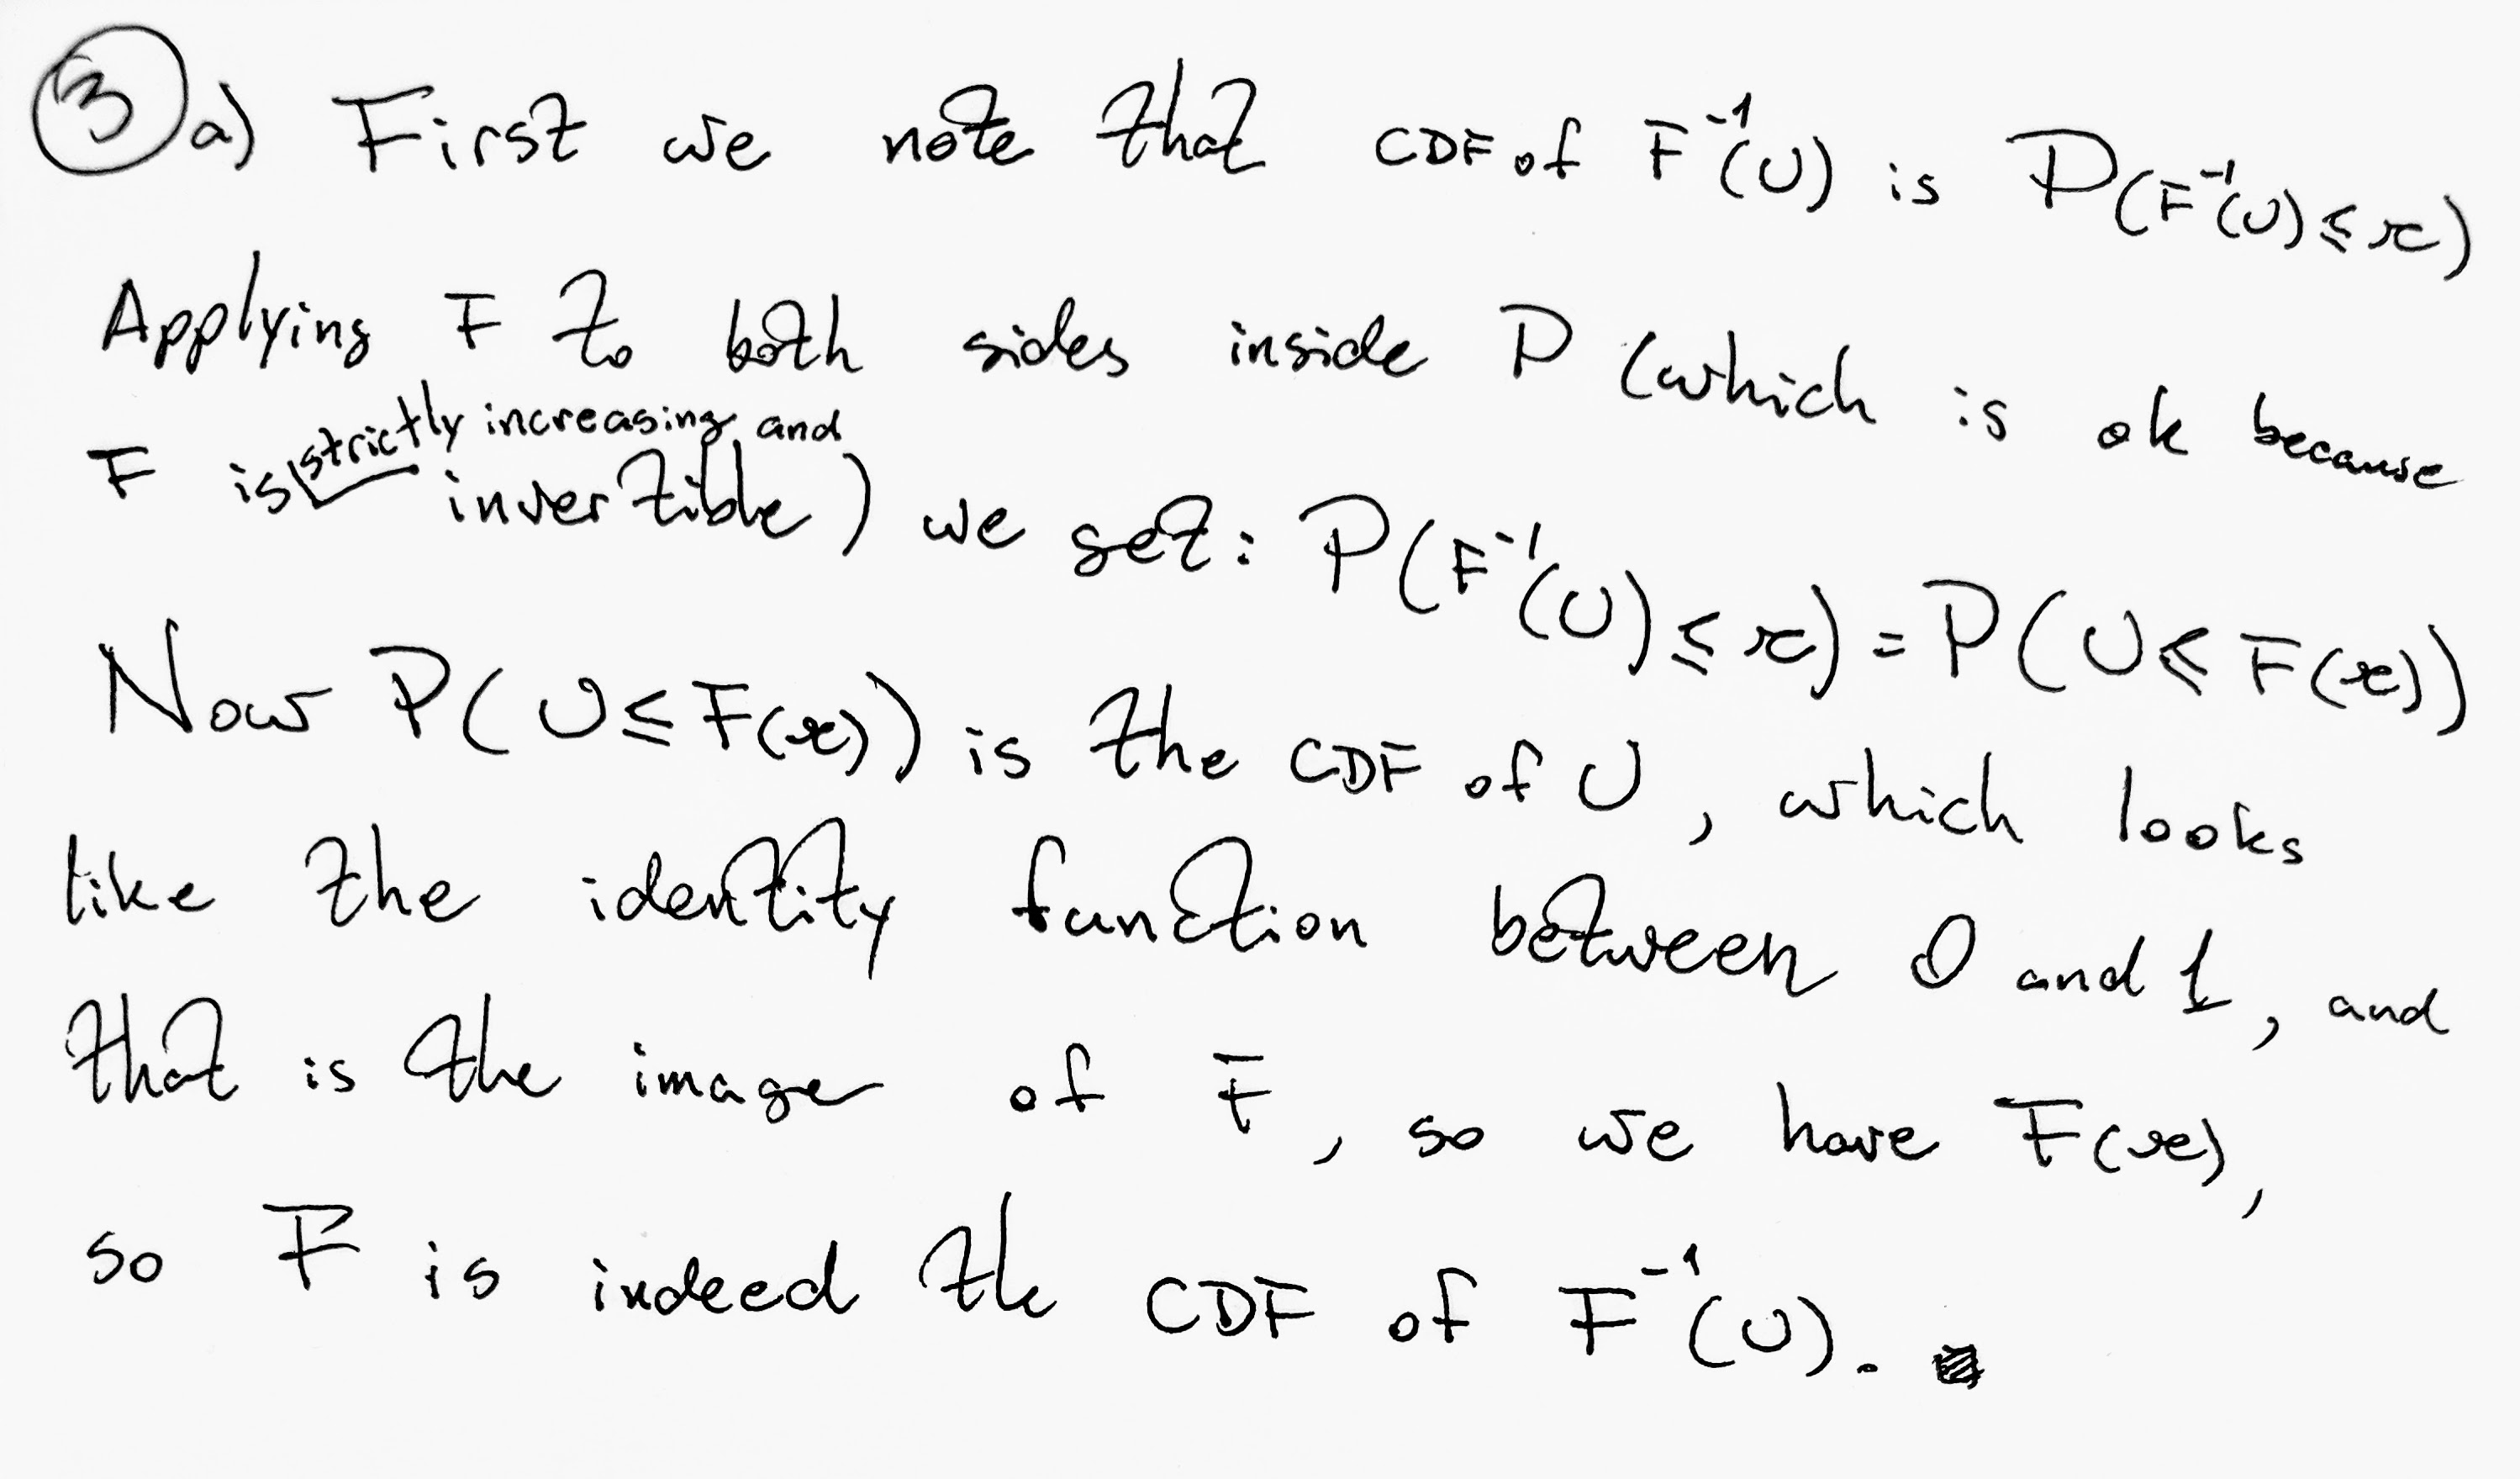 ③ a) First we note that CDF of F⁻¹(U) is P(F⁻¹(U) ≤ x)
Applying F to both sides inside P (which is ok because
F is strictly increasing and invertible) we get: P(F⁻¹(U) ≤ x) = P(U ≤ F(x))
Now P(U ≤ F(x)) is the CDF of U, which looks
like the identity function between 0 and 1, and
that is the image of F, so we have F(x),
so F is indeed the CDF of F⁻¹(U).